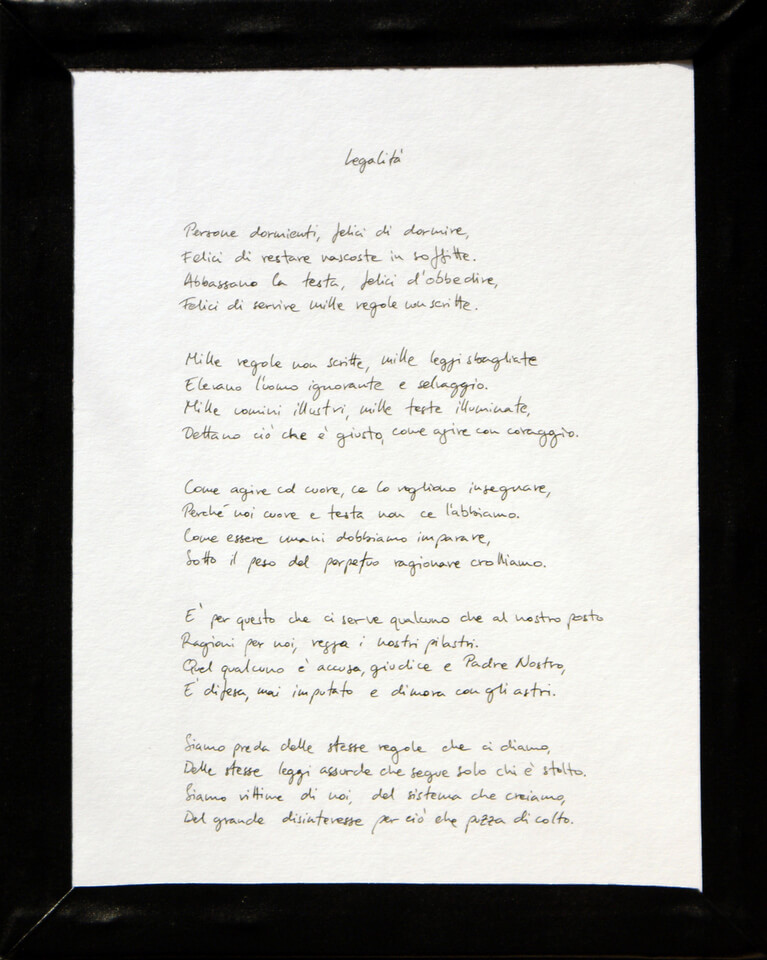 Legalità
Persone dormienti, felici di dormire,
Felici di restare nascoste in soffitte.
Abbassano la testa, felici d'obbedire,
Felici di servire mille regole non scritte.
Mille regole non scritte, mille leggi sbagliate
Elevano l'uomo ignorante e selvaggio.
Mille uomini illustri, mille teste illuminate,
Dettano ciò che è giusto, come agire con coraggio.
Come agire col cuore, ce lo vogliono insegnare,
Perché noi cuore e testa non ce l'abbiamo.
Come essere umani dobbiamo imparare,
Sotto il peso del perpetuo ragionare crolliamo.
E' per questo che ci serve qualcuno che al nostro posto
Ragioni per noi, regga i nostri pilastri.
Quel qualcuno è accusa, giudice e Padre Nostro,
E' difesa, mai imputato e dimora con gli astri.
Siamo preda delle stesse regole che ci diamo,
Delle stesse leggi assurde che segue solo chi è stolto.
Siamo vittime di noi, del sistema che creiamo,
Del grande disinteresse per ciò che puzza di colto.